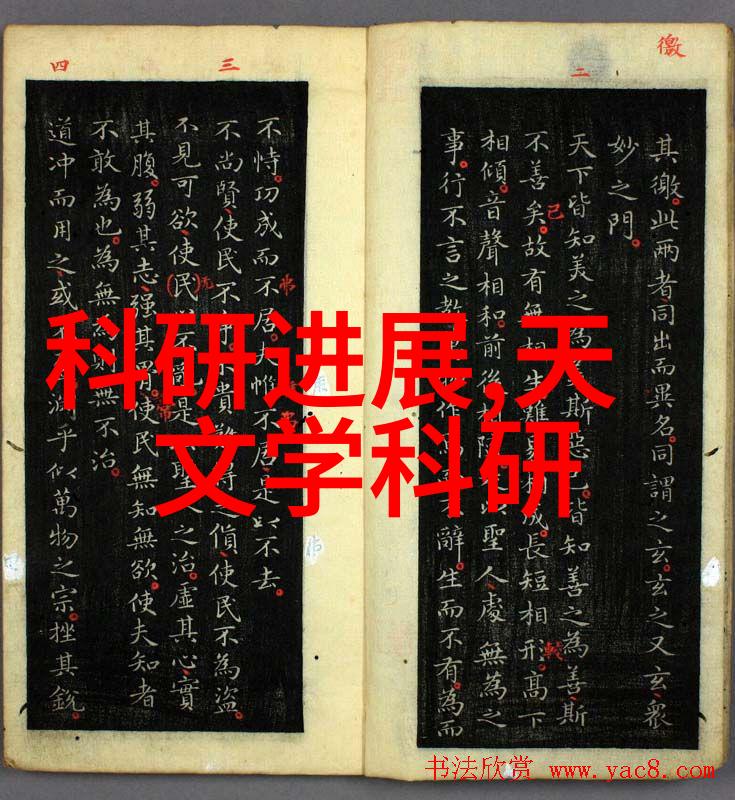 科研进展,天
文学科研
徼
二
其徼。此两者同出而異名。同謂之玄。玄之又玄、衆
妙之門。
天下皆知美之為斯惡已。皆知善之為善斯
不善矣。故有無相生難易相成。長短相形。高下
相傾。音聲相和。前後相聖人處無為之
事。行不言之教作不辭。生而不有。為而
三
四
不恃。功成而不居。夫惟不居。是以不去。
不尚賢、使民不貴難得之貨、使民不為盗。
不見可欲、使民不亂是聖人之治。虛其心、實
其腹。弱其志、强其骨。使民無知無欲。使夫知者
不敢為也。為無為則無不治。
道冲而用之、或不淵乎似萬物之宗。挫其銳。
书法欣赏 www.yac8.com